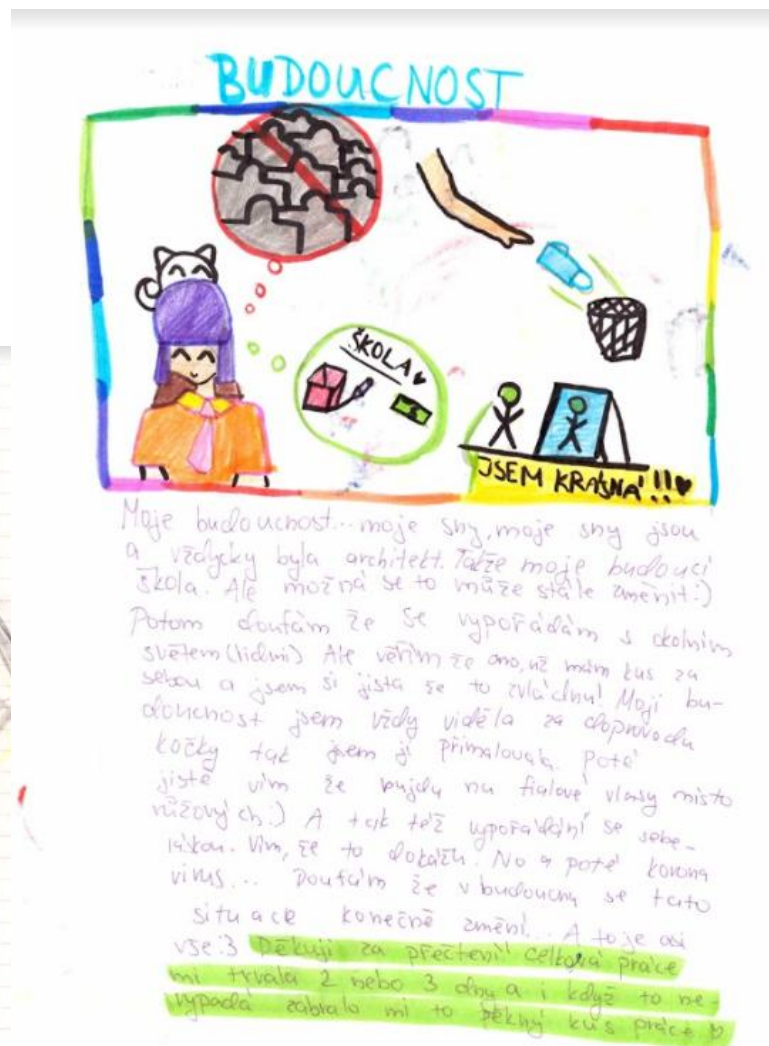 BUDOUCNOST
ŠKOLA
JSEM KRÁSNÁ!!
Moje budoucnost... moje sny, moje sny jsou
a vždycky byla architekt. Takže moje budoucí
škola. Ale možná se to může stále změnit:)
Potom doufám že se vypořádám s okolním
světem (lidmi) Ale věřím že ano, už mám kus za
sebou a jsem si jistá že to zvládnu! Moji bu-
doucnost jsem vždy viděla za doprovodu
kočky tak jsem ji přimalovala. Poté
jistě vím že půjdu na fialové vlasy místo
růžových:) A tak též vypořádání se sebe-
láskou. Vím, že to dokážu. No a poté korona
virus... Doufám že v budoucnu se tato
situace konečně změní... A to je asi
vše:3 Děkuji za přečtení! Celková práce
mi trvala 2 nebo 3 dny a i když to ne-
vypadá zabralo mi to pěkný kus práce